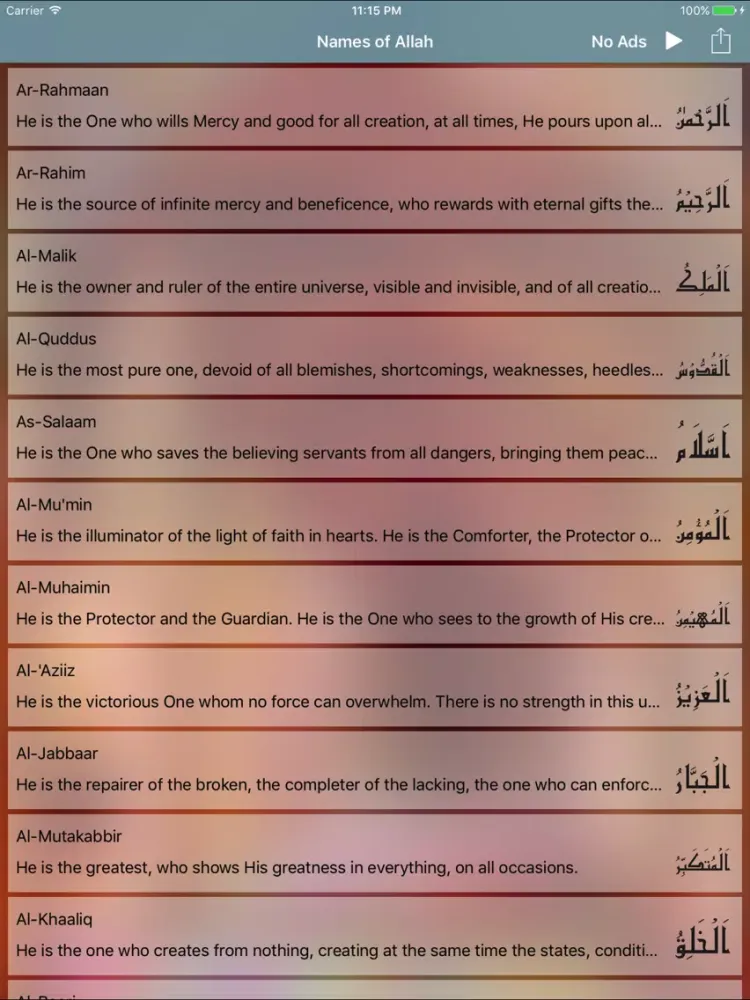 Carrier 11:15 PM 100%
Names of Allah No Ads
Ar-Rahmaan
He is the One who wills Mercy and good for all creation, at all times, He pours upon al... اَلرَّحْمٰنُ
Ar-Rahim
He is the source of infinite mercy and beneficence, who rewards with eternal gifts the... اَلرَّحِيْمُ
Al-Malik
He is the owner and ruler of the entire universe, visible and invisible, and of all creatio... اَلْمَلِكُ
Al-Quddus
He is the most pure one, devoid of all blemishes, shortcomings, weaknesses, heedles... اَلْقُدُّوْسُ
As-Salaam
He is the One who saves the believing servants from all dangers, bringing them peac... اَسَّلَامُ
Al-Mu'min
He is the illuminator of the light of faith in hearts. He is the Comforter, the Protector o... اَلْمُؤْمِنُ
Al-Muhaimin
He is the Protector and the Guardian. He is the One who sees to the growth of His cre... اَلْمُهَيْمِنُ
Al-'Aziiz
He is the victorious One whom no force can overwhelm. There is no strength in this u... اَلْعَزِيْزُ
Al-Jabbaar
He is the repairer of the broken, the completer of the lacking, the one who can enforc... اَلْجَبَّارُ
Al-Mutakabbir
He is the greatest, who shows His greatness in everything, on all occasions. اَلْمُتَكَبِّرُ
Al-Khaaliq
He is the one who creates from nothing, creating at the same time the states, conditi... اَلْخَلِقُ